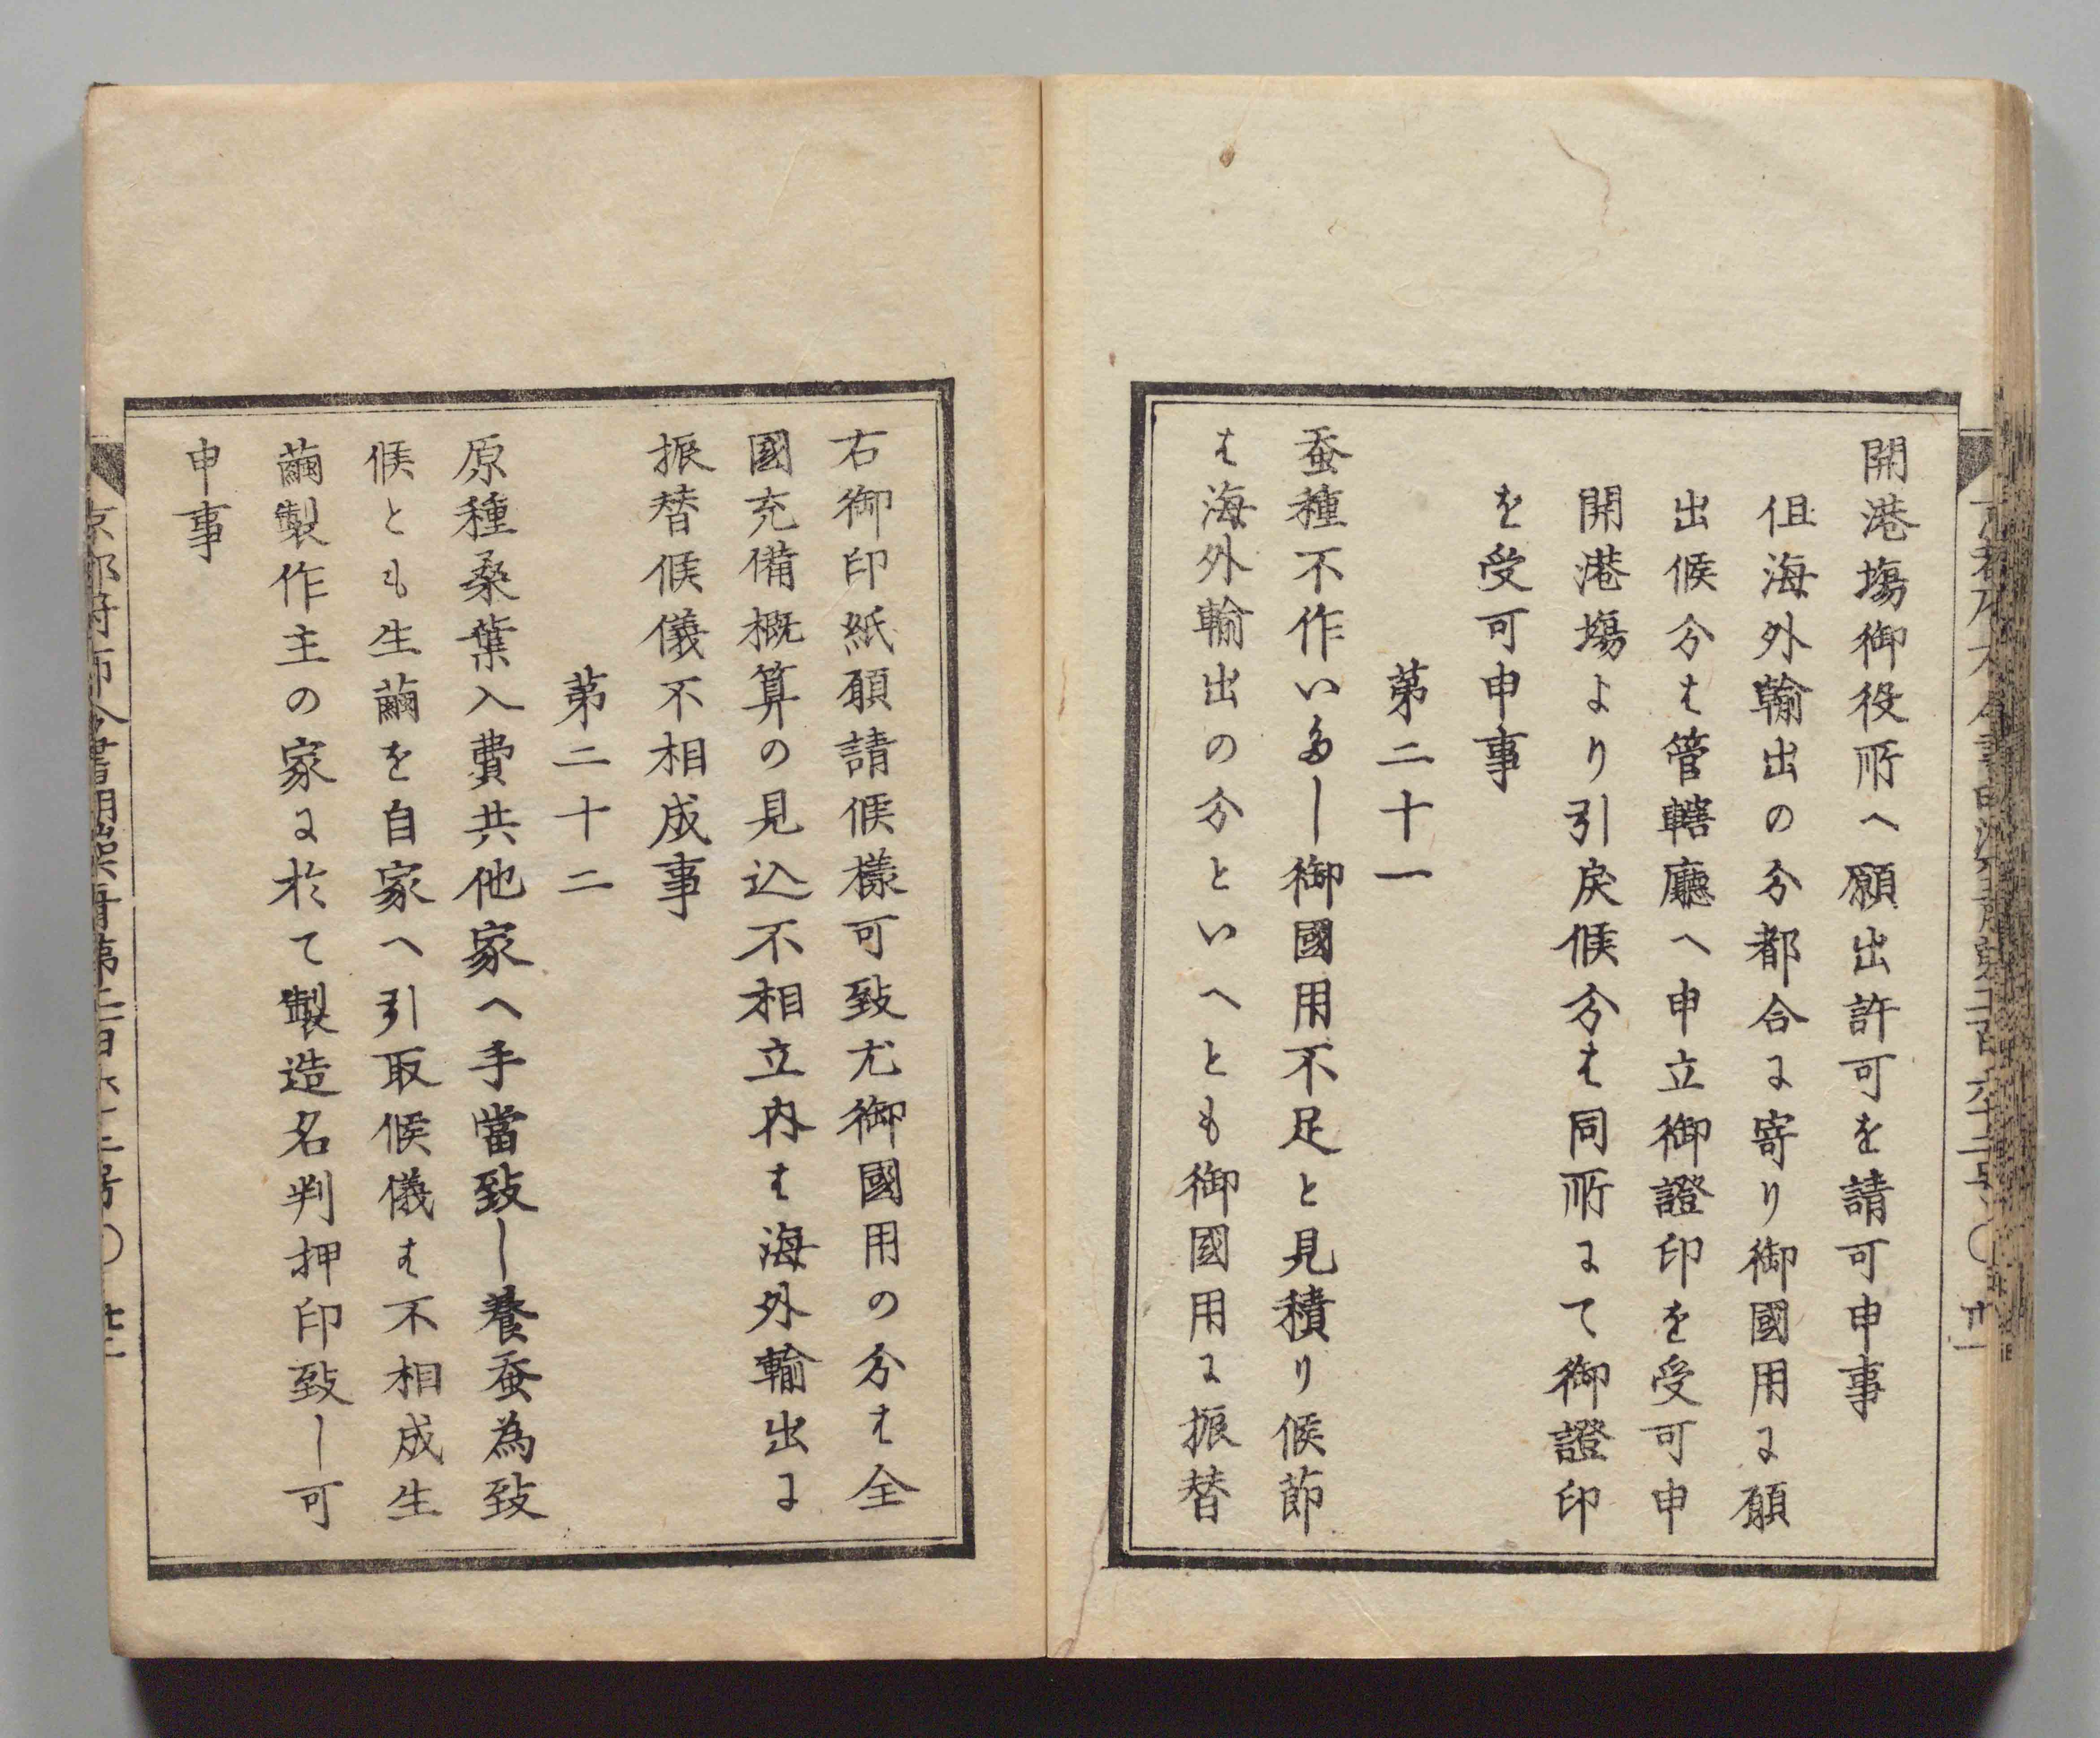 開港塲御役所へ願出許可を請可申事
但海外輸出の分都合に寄り御國用に願
出候分は管轄廳へ申立御證印を受可申
開港塲より引戻候分は同所にて御證印
を受可申事
第二十一
蚕種不作いたし御國用不足と見積り候節
は海外輸出の分といへとも御國用に振替
右御印紙願請候様可致尤御國用の分は全
國充備概算の見込不相立内は海外輸出に
振替候儀不相成事
第二十二
原種桑葉入費共他家へ手當致し養蚕為致
候とも生繭を自家へ引取候儀は不相成生
繭製作主の家に於て製造名判押印致し可
申事